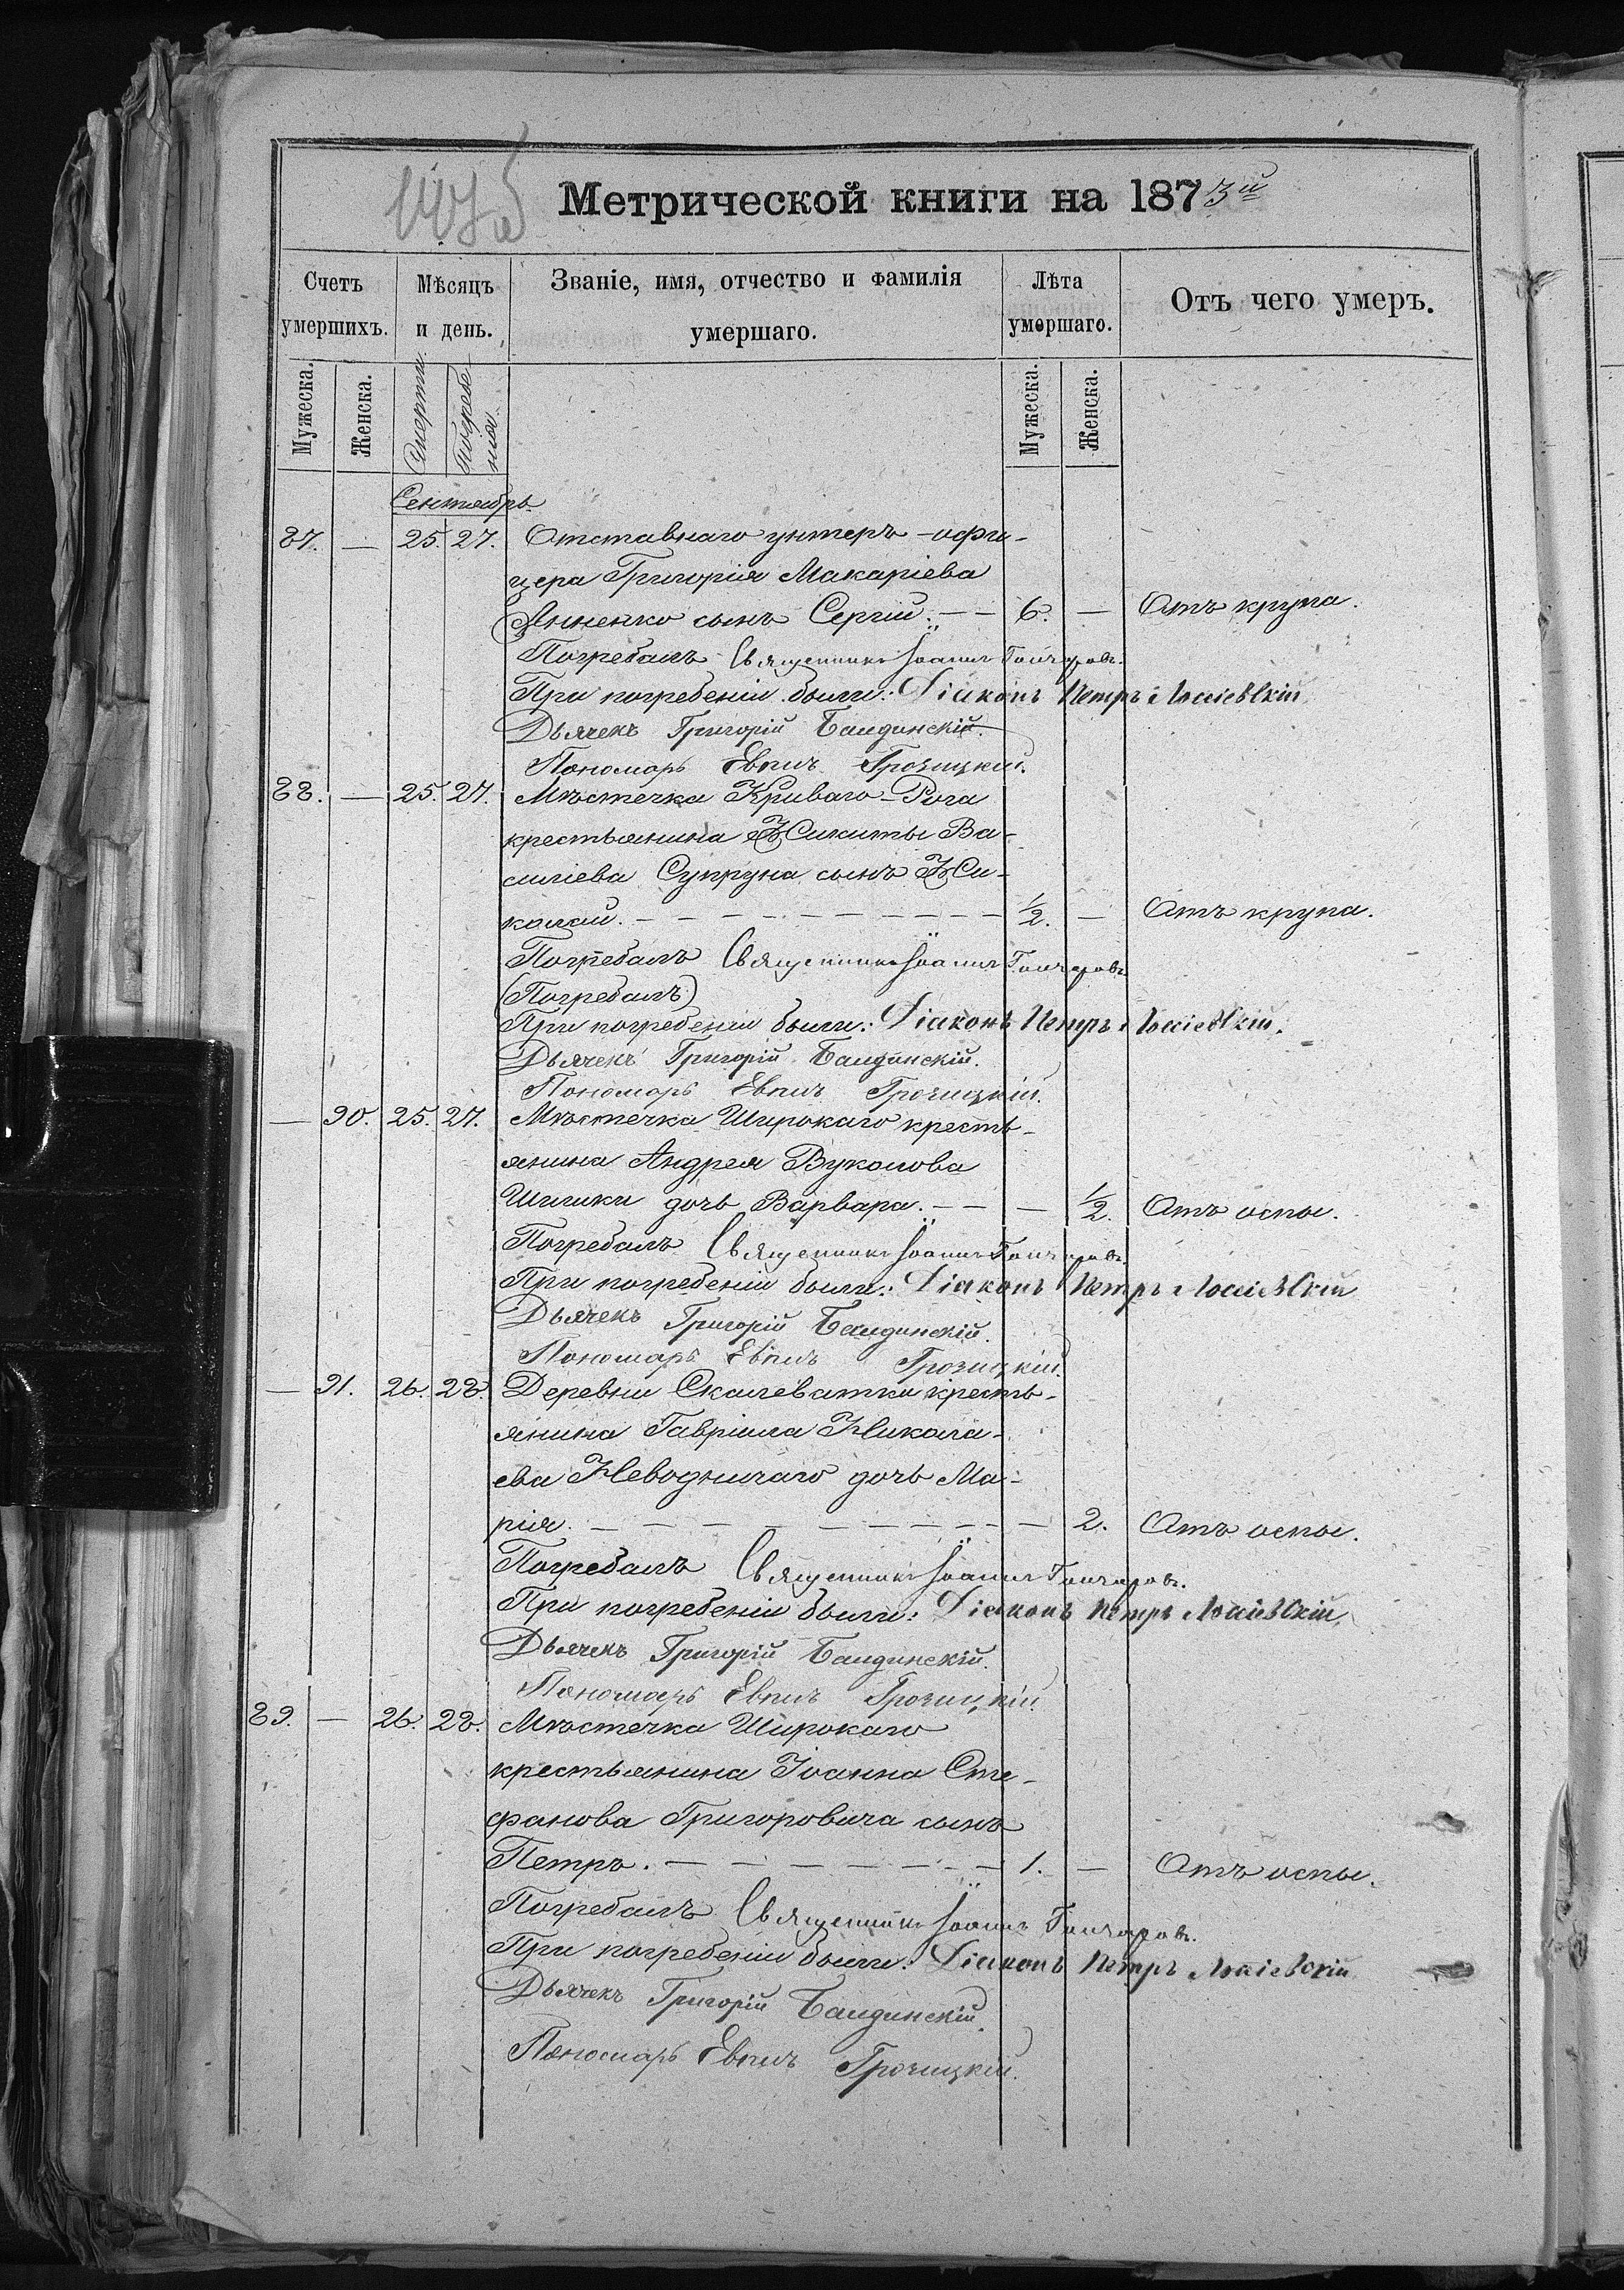 Метрической книги на 1873й
Счетъ умершихъ. Мѣсяцъ и день. Званіе, имя, отчество и фамилія умершаго. Лѣта умершаго. Отъ чего умеръ.
Мужеска. Женска. Смерти. Погребенія. Мужеска. Женска.
Сентябрь
87. — 25. 27. Отставнаго унтеръ-офи-
цера Григорія Макаріева
Яненко сынъ Сергій. — — 6. — Отъ крупа.
Погребалъ Священникъ Іоаннъ Гончаровъ.
При погребеніи были: Діаконъ Петръ
Дьячекъ Григорій
Пономарь
88. — 25. 27. Мѣстечка Криваго-Рога
крестьянина Никиты Ва-
силіева Супруна сынъ Ни-
колай. — — — — — — — — — 1/2. — Отъ крупа.
Погребалъ Священникъ Іоаннъ Гончаровъ
(Погребалъ)
При погребеніи были: Діаконъ Петръ
Дьячекъ Григорій
Пономарь
— 90. 25. 27. Мѣстечка Широкаго кресть-
янина Андрея Вуколова
Шишки дочь Варвара. — — — 1/2. Отъ оспы.
Погребалъ Священникъ Іоаннъ Гончаровъ.
При погребеніи были: Діаконъ Петръ
Дьячекъ Григорій
Пономарь
— 91. 26. 28. Деревни Скалеватки кресть-
янина Гавріила Никола-
ева Неводничаго дочь Ма-
рія. — — — — — — — — — 2. Отъ оспы.
Погребалъ Священникъ Іоаннъ Гончаровъ.
При погребеніи были: Діаконъ Петръ
Дьячекъ Григорій
Пономарь
89. — 26. 28. Мѣстечка Широкаго
крестьянина Іоанна Сте-
фанова Григоровича сынъ
Петръ. — — — — — — — 1. — Отъ оспы.
Погребалъ Священникъ Іоаннъ Гончаровъ.
При погребеніи были: Діаконъ Петръ
Дьячекъ Григорій
Пономарь